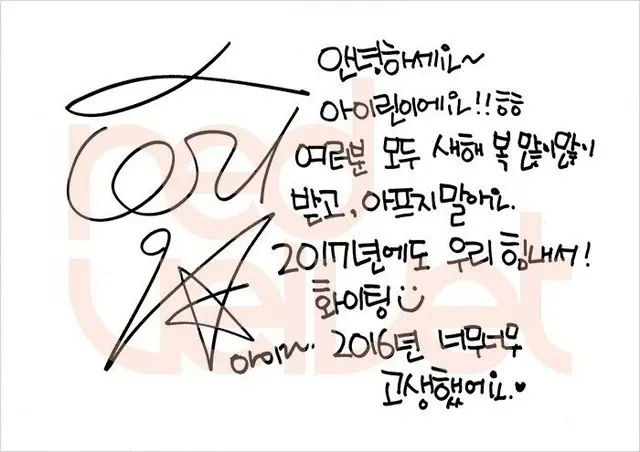 안녕하세요~
아이린이에요!! ㅎㅎ
여러분 모두 새해 복 많이많이
받고, 아프지말아요.
2017년에도 우리 힘내서!
화이팅
2016년 너무너무
고생했어요.♥
red
velvet